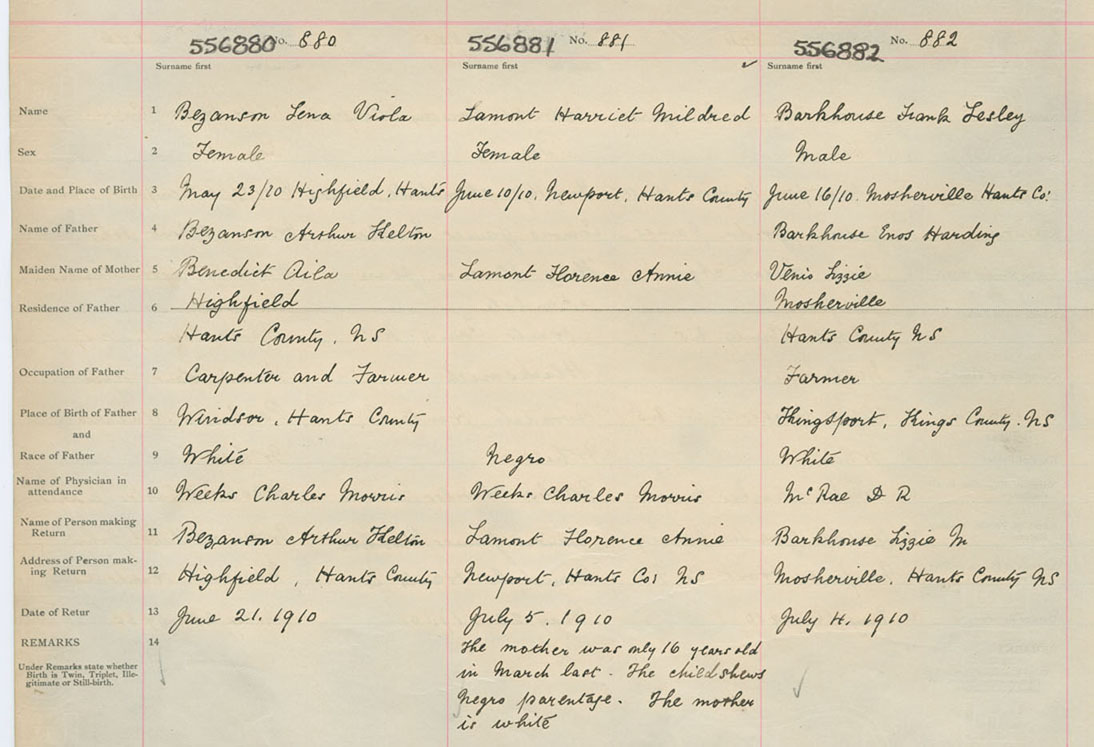 556880 No. 880 556881 No. 881 556882 No. 882
Surname first Surname first Surname first
Name 1 Bezanson Lena Viola Lamont Harriet Mildred Barkhouse Frank Lesley
Sex 2 Female Female Male
Date and Place of Birth 3 May 23/10 Highfield, Hants June 10/10. Newport, Hants County June 16/10. Mosherville Hants Co:
Name of Father 4 Bezanson Arthur Barkhouse Enos Harding
Maiden Name of Mother 5 Benedict Aila Lamont Florence Annie Venio Lizzie
Residence of Father 6 Highfield Mosherville
Hants County. NS Hants County NS
Occupation of Father 7 Carpenter and Farmer Farmer
Place of Birth of Father 8 Windsor, Hants County Kingsport, Kings County. NS
and
Race of Father 9 White Negro White
Name of Physician in
attendance 10 Weeks Charles Morris Weeks Charles Morris McRae D R
Name of Person making
Return 11 Bezanson Arthur Lamont Florence Annie Barkhouse Lizzie M
Address of Person mak-
ing Return 12 Highfield, Hants County Newport, Hants Co: NS Mosherville, Hants County NS
Date of Retur 13 June 21. 1910 July 5. 1910 July 4. 1910
REMARKS 14 The mother was only 16 years old
Under Remarks state whether
Birth is Twin, Triplet, Ille-
gitimate or Still-birth.
in March last. The child shews
Negro parentage. The mother
is white